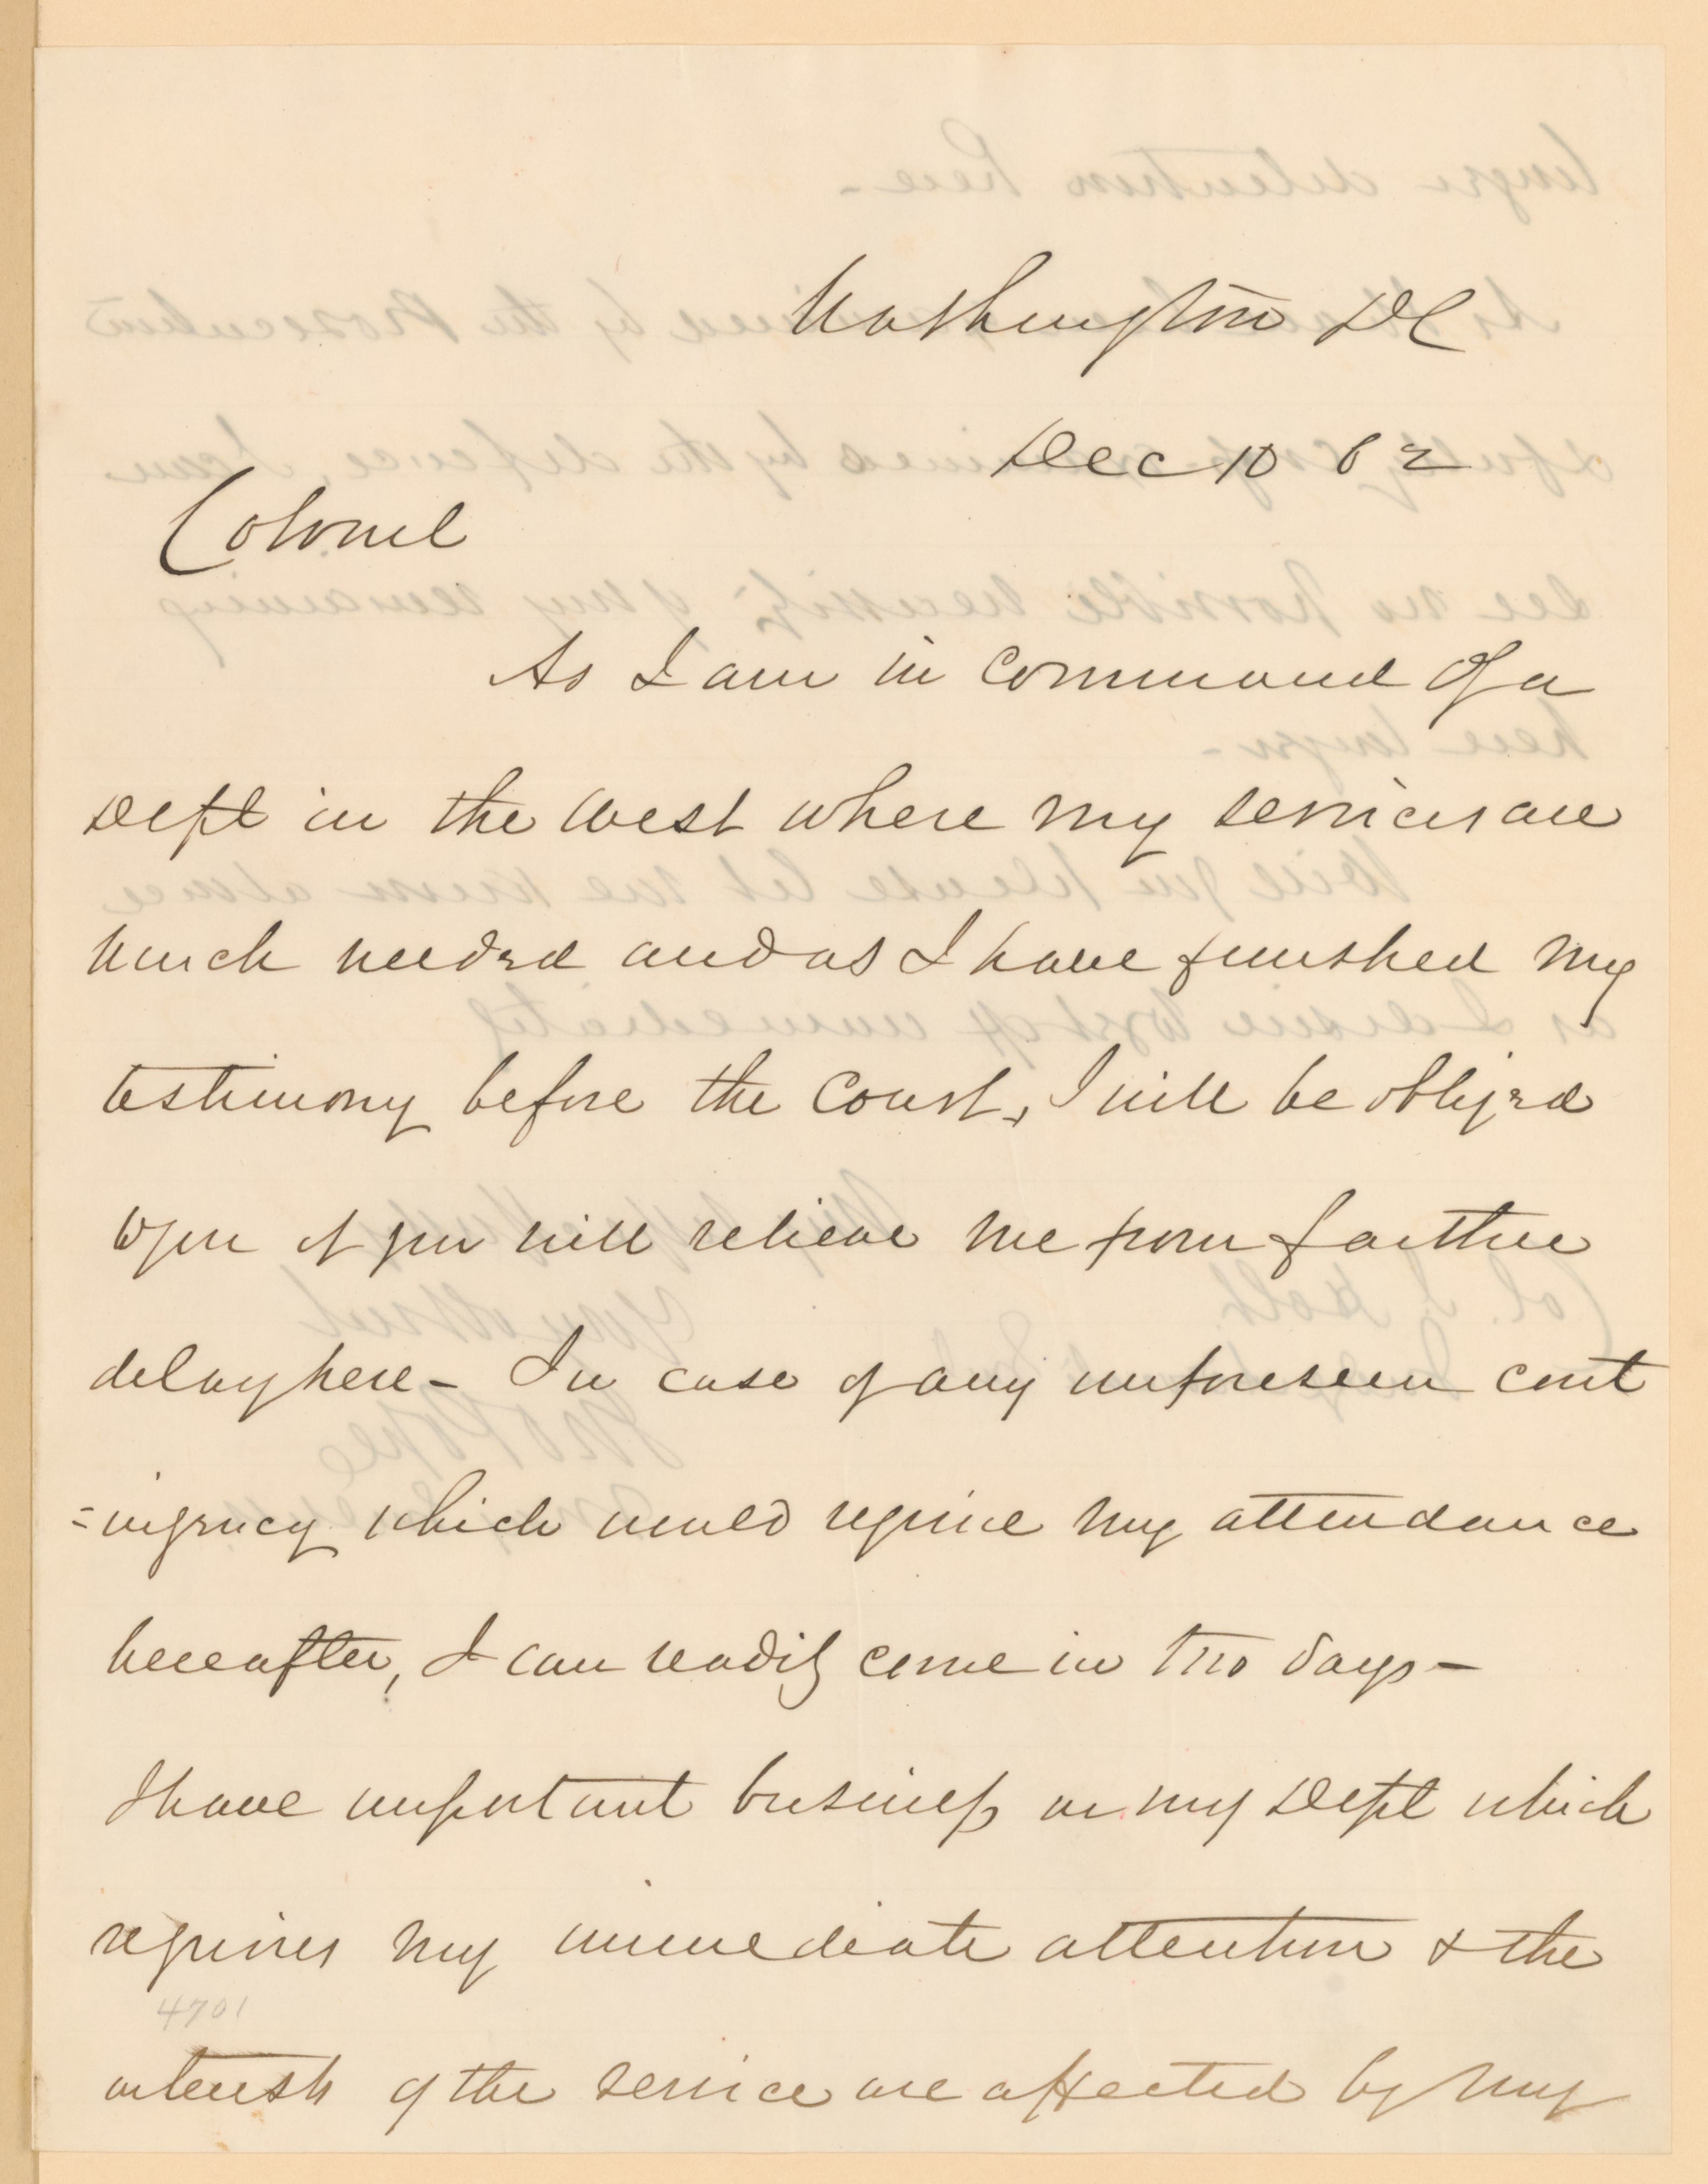 Washington DC
Dec 10 62
Colonel
As I am in command of a
Dept in the West where my services are
much needed and as I have finished my
testimony before the Court, I will be obliged
to you if you will relieve me from farther
delay here - In case of any unforeseen cont
=ingency which would require my attendance
hereafter, I can readily come in two days -
I have important business in my Dept which
requires my immediate attention & the
4701
interests of the service are affected by my